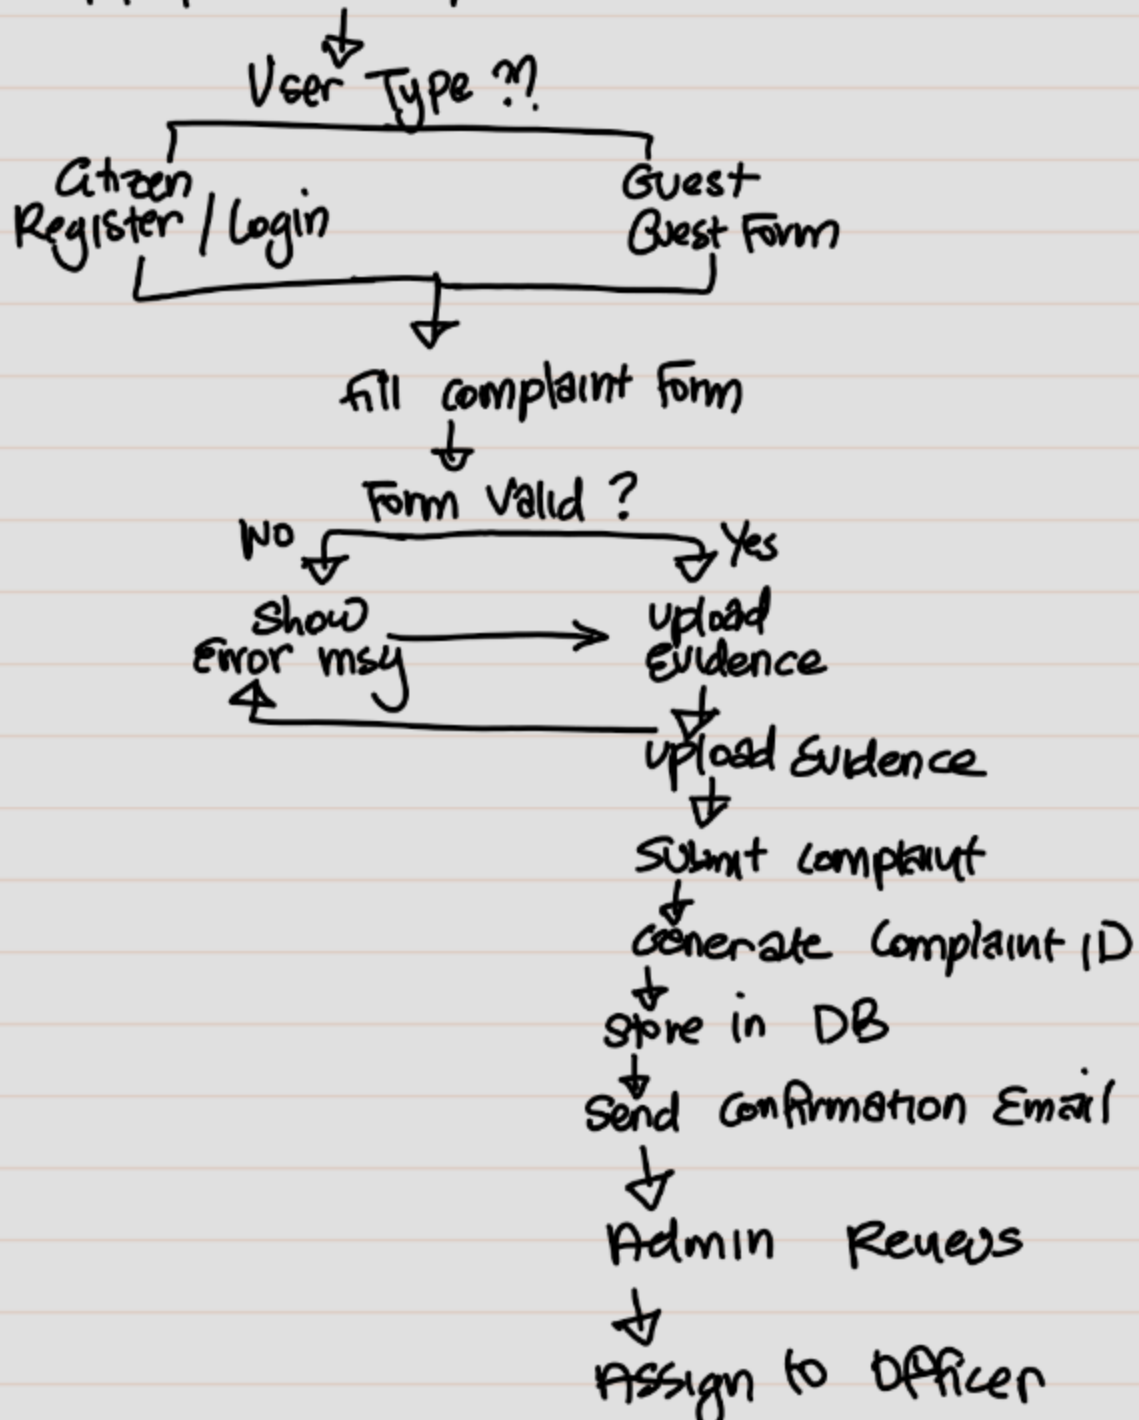 User Type ??
Citizen
Register / Login
Guest
Guest Form
Fill complaint Form
Form Valid ?
No
Yes
Show
Error msg
Upload
Evidence
Upload Evidence
Submit Complaint
Generate Complaint ID
Store in DB
Send Confirmation Email
Admin Reviews
Assign to Officer